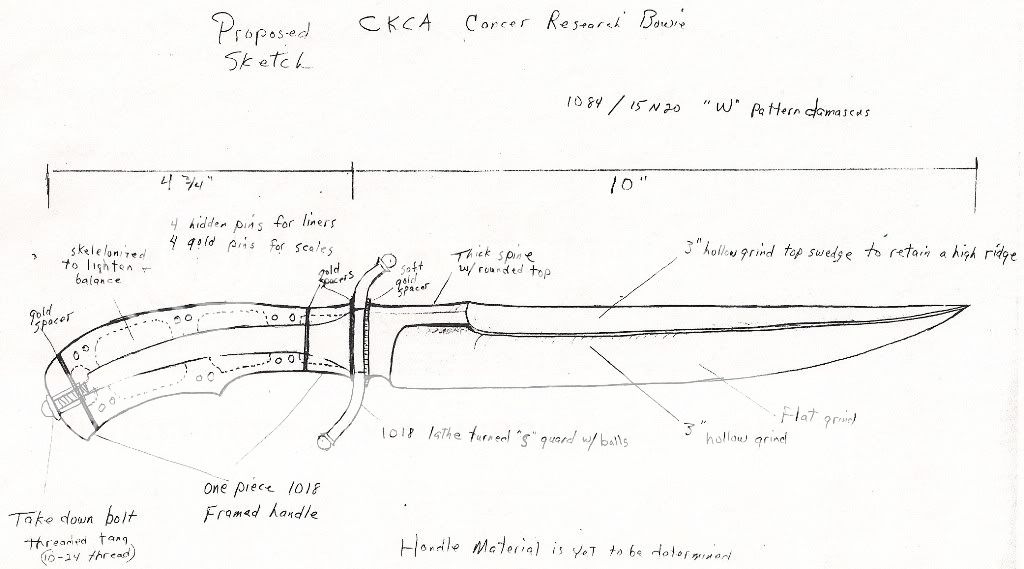 Proposed CKCA Cancer Research Bowie
Sketch
1084 / 15N20 "W" Pattern damascus
4 3/4"
10"
4 hidden pins for liners
4 gold pins for scales
skeletonized
to lighten +
balance
gold
spacer
gold
spacers
soft
gold
spacer
Thick spine
w/ rounded top
3" hollow grind top swedge to retain a high ridge
Flat grind
3"
hollow grind
1018 lathe turned "S" guard w/ balls
one piece 1018
Framed handle
Take down bolt
threaded tang
(10-24 thread)
Handle Material is yet to be determined